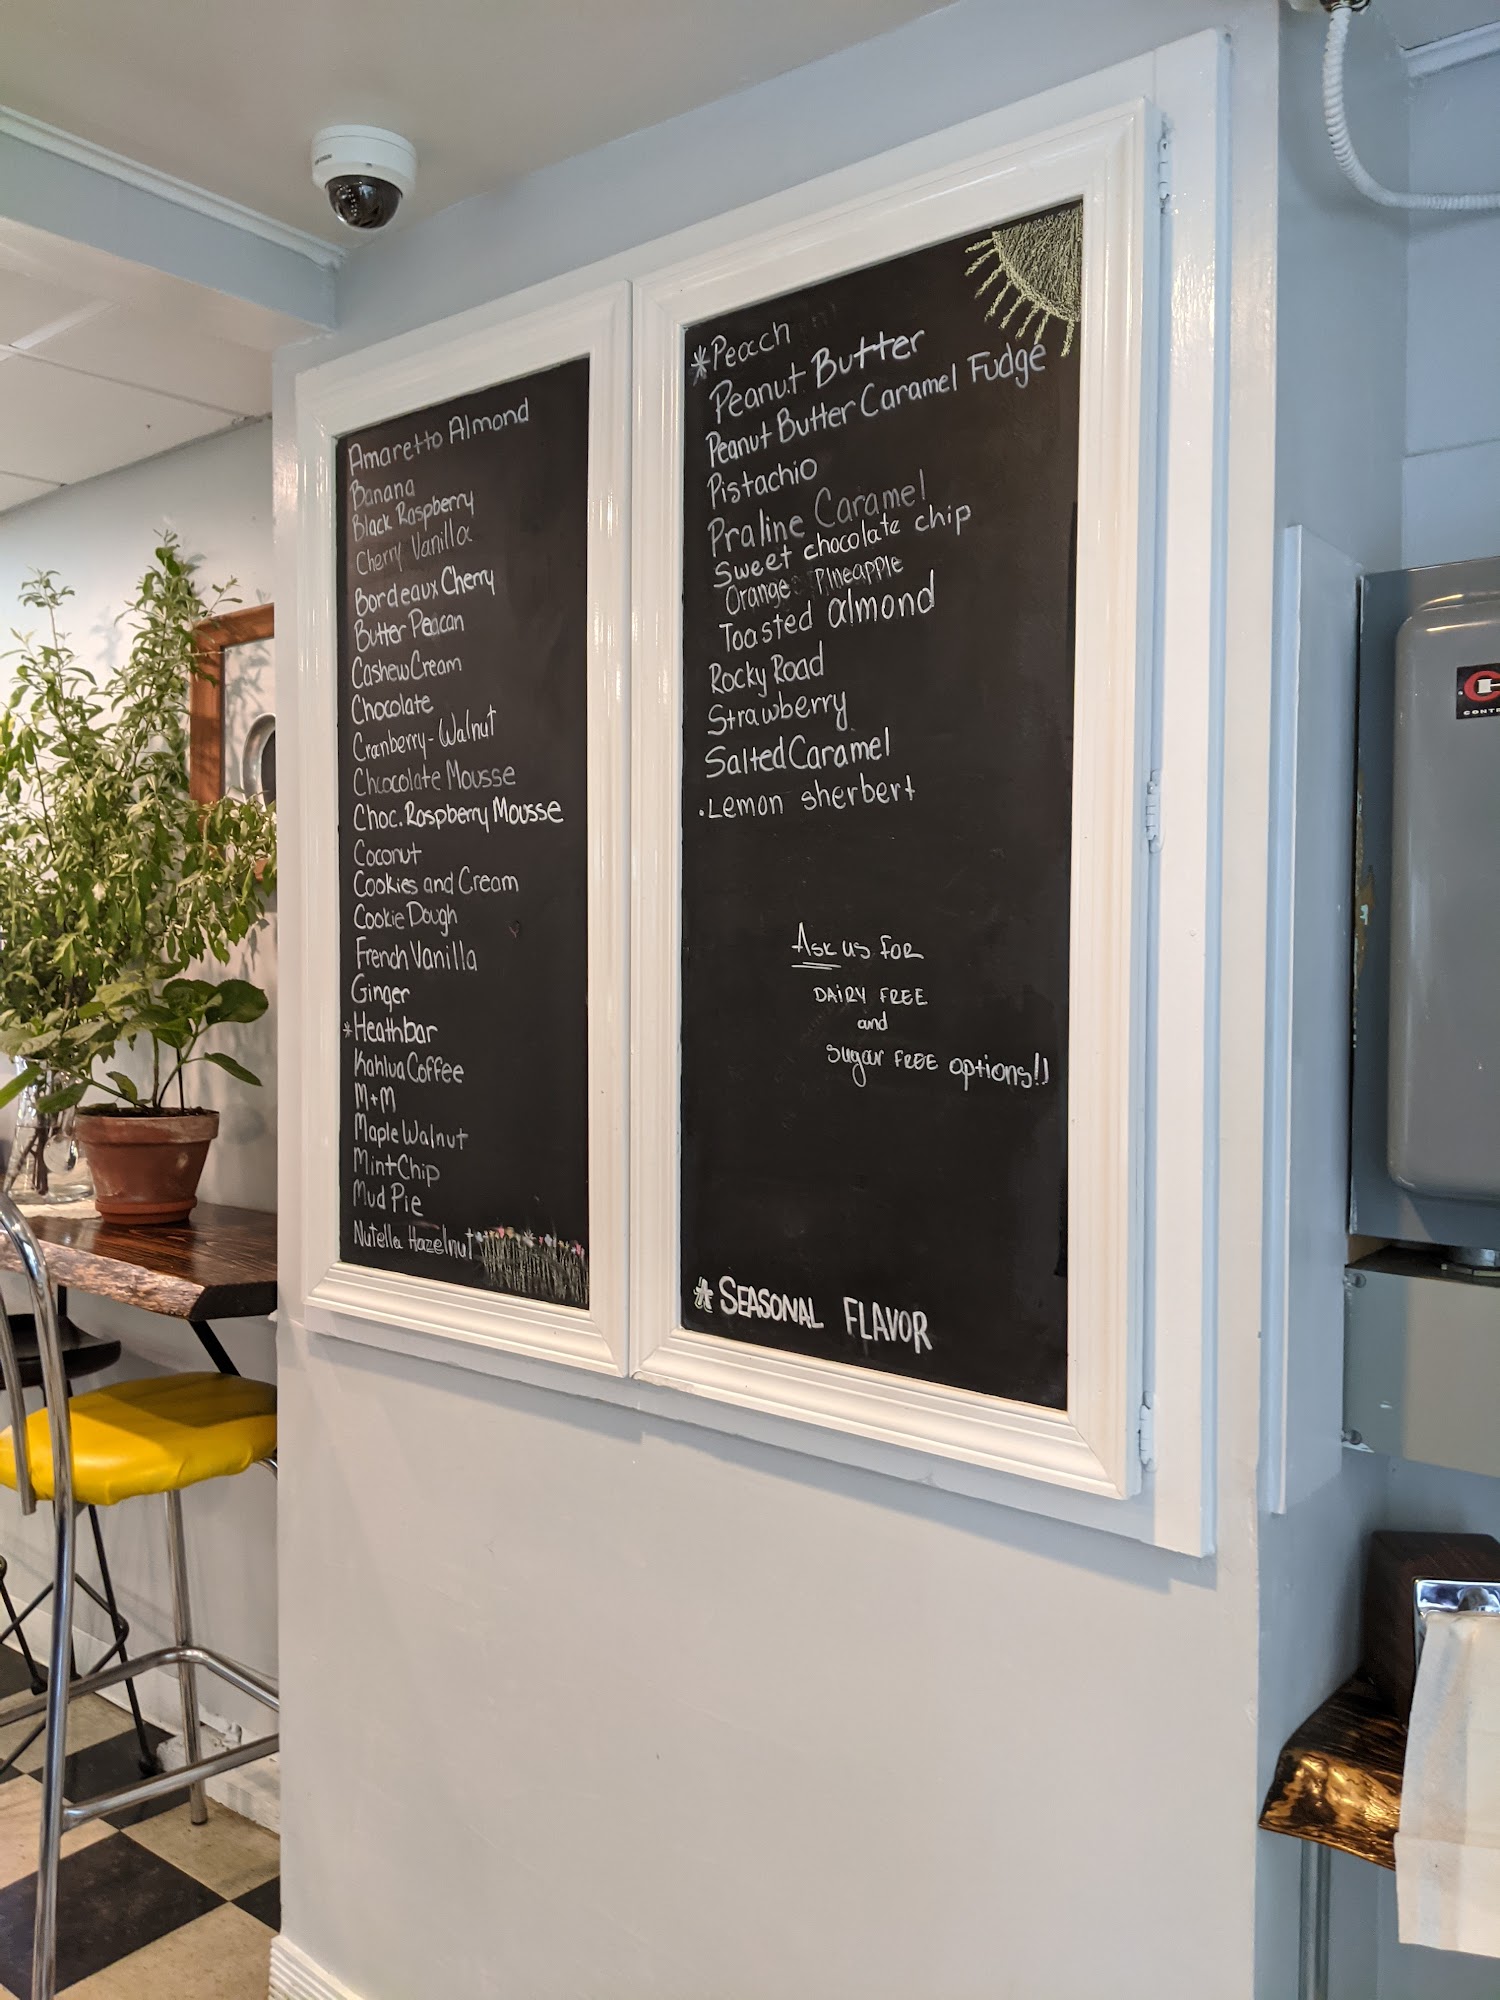 Amaretto Almond
Banana
Black Raspberry
Cherry Vanilla
Bordeaux Cherry
Butter Peacan
Cashew Cream
Chocolate
Cranberry-Walnut
Chocolate Mousse
Choc. Raspberry Mousse
Coconut
Cookies and Cream
Cookie Dough
French Vanilla
Ginger
*Heathbar
Kahlua Coffee
M+M
Maple Walnut
Mint Chip
Mud Pie
Nutella Hazelnut
*Peach
Peanut Butter
Peanut Butter Caramel Fudge
Pistachio
Praline Caramel
Sweet chocolate chip
Orange Pineapple
Toasted almond
Rocky Road
Strawberry
Salted Caramel
.Lemon sherbert
Ask us FOR
DAIRY FREE
and
sugar FREE options!!
* SEASONAL FLAVOR